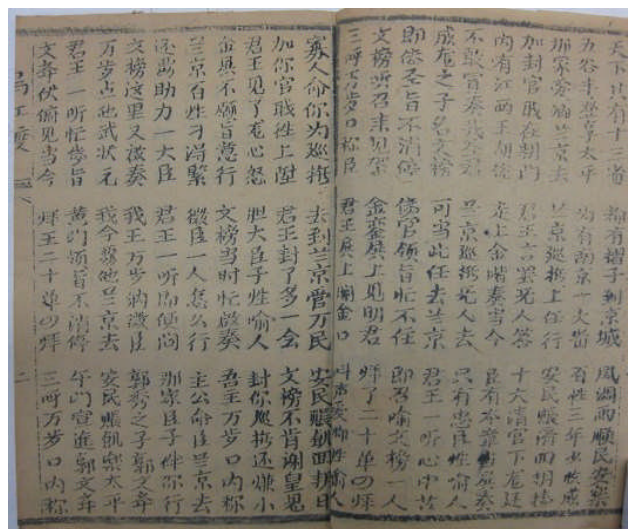 天下只有十三省 都有摺子到京城 風調雨順民安樂
五谷丰登享太平 内有南京一大省 百姓三年少收成
那家 兰京去 兰京巡撫上任行 安民賑济两相情
加封官戝在朝門 君王言罢兄人答 十六清官下龙廷
内有江西王胡 走上金階奏当今 臣有本章当展奏
不敢冒奏我 兰京巡撫兄人去 只有忠臣性喻人
成龙之子名文榜 可当此任去兰京 君王一听心中
即修圣旨不消停 侯官領旨忙不住 即召喻文榜一人
文榜听召来見架 金銮展上見明君 拜了二十单四拜
三呼万岁口称臣 君王展上開金口 叫声愛卿性喻人
寡人命你为巡撫 去到兰京管万民 安民賑飢回朝日
加你官戝往上陞 君王封了多一会 文榜不肯谢皇恩
君王見了龙心怒 胆大臣子性喻人 封你巡撫还嫌小
金展不願旨意行 文榜当时忙啟奏 吾王万岁口内称
兰京百姓刁得緊 微臣一人怎么行 主公命臣兰京去
还要助力一大臣 君王一听即便问 那家臣子伴你行
文榜这里又啟奏 我王万岁纳微臣 郭秀之子郭文举
万岁点他武状元 我今 他兰京去 安民賑飢樂太平
君王一听忙传旨 黄門領旨不消停 午門宣進郭文举
文举伏俯見当今 拜王二十单四拜 三呼万岁口内称
烏江渡 二